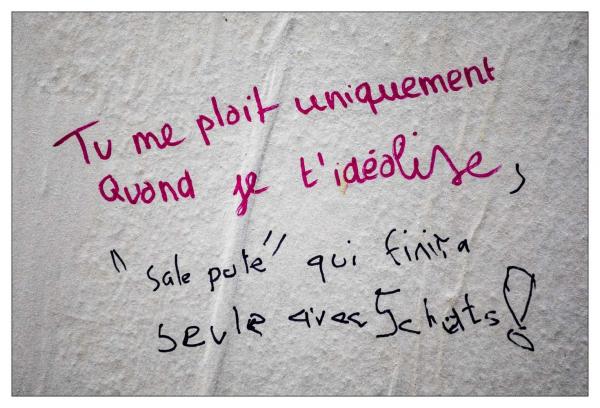 Tu me plait uniquement
Quand je t'idéalise,
"sale pute" qui finira
seule avec 5 chats!